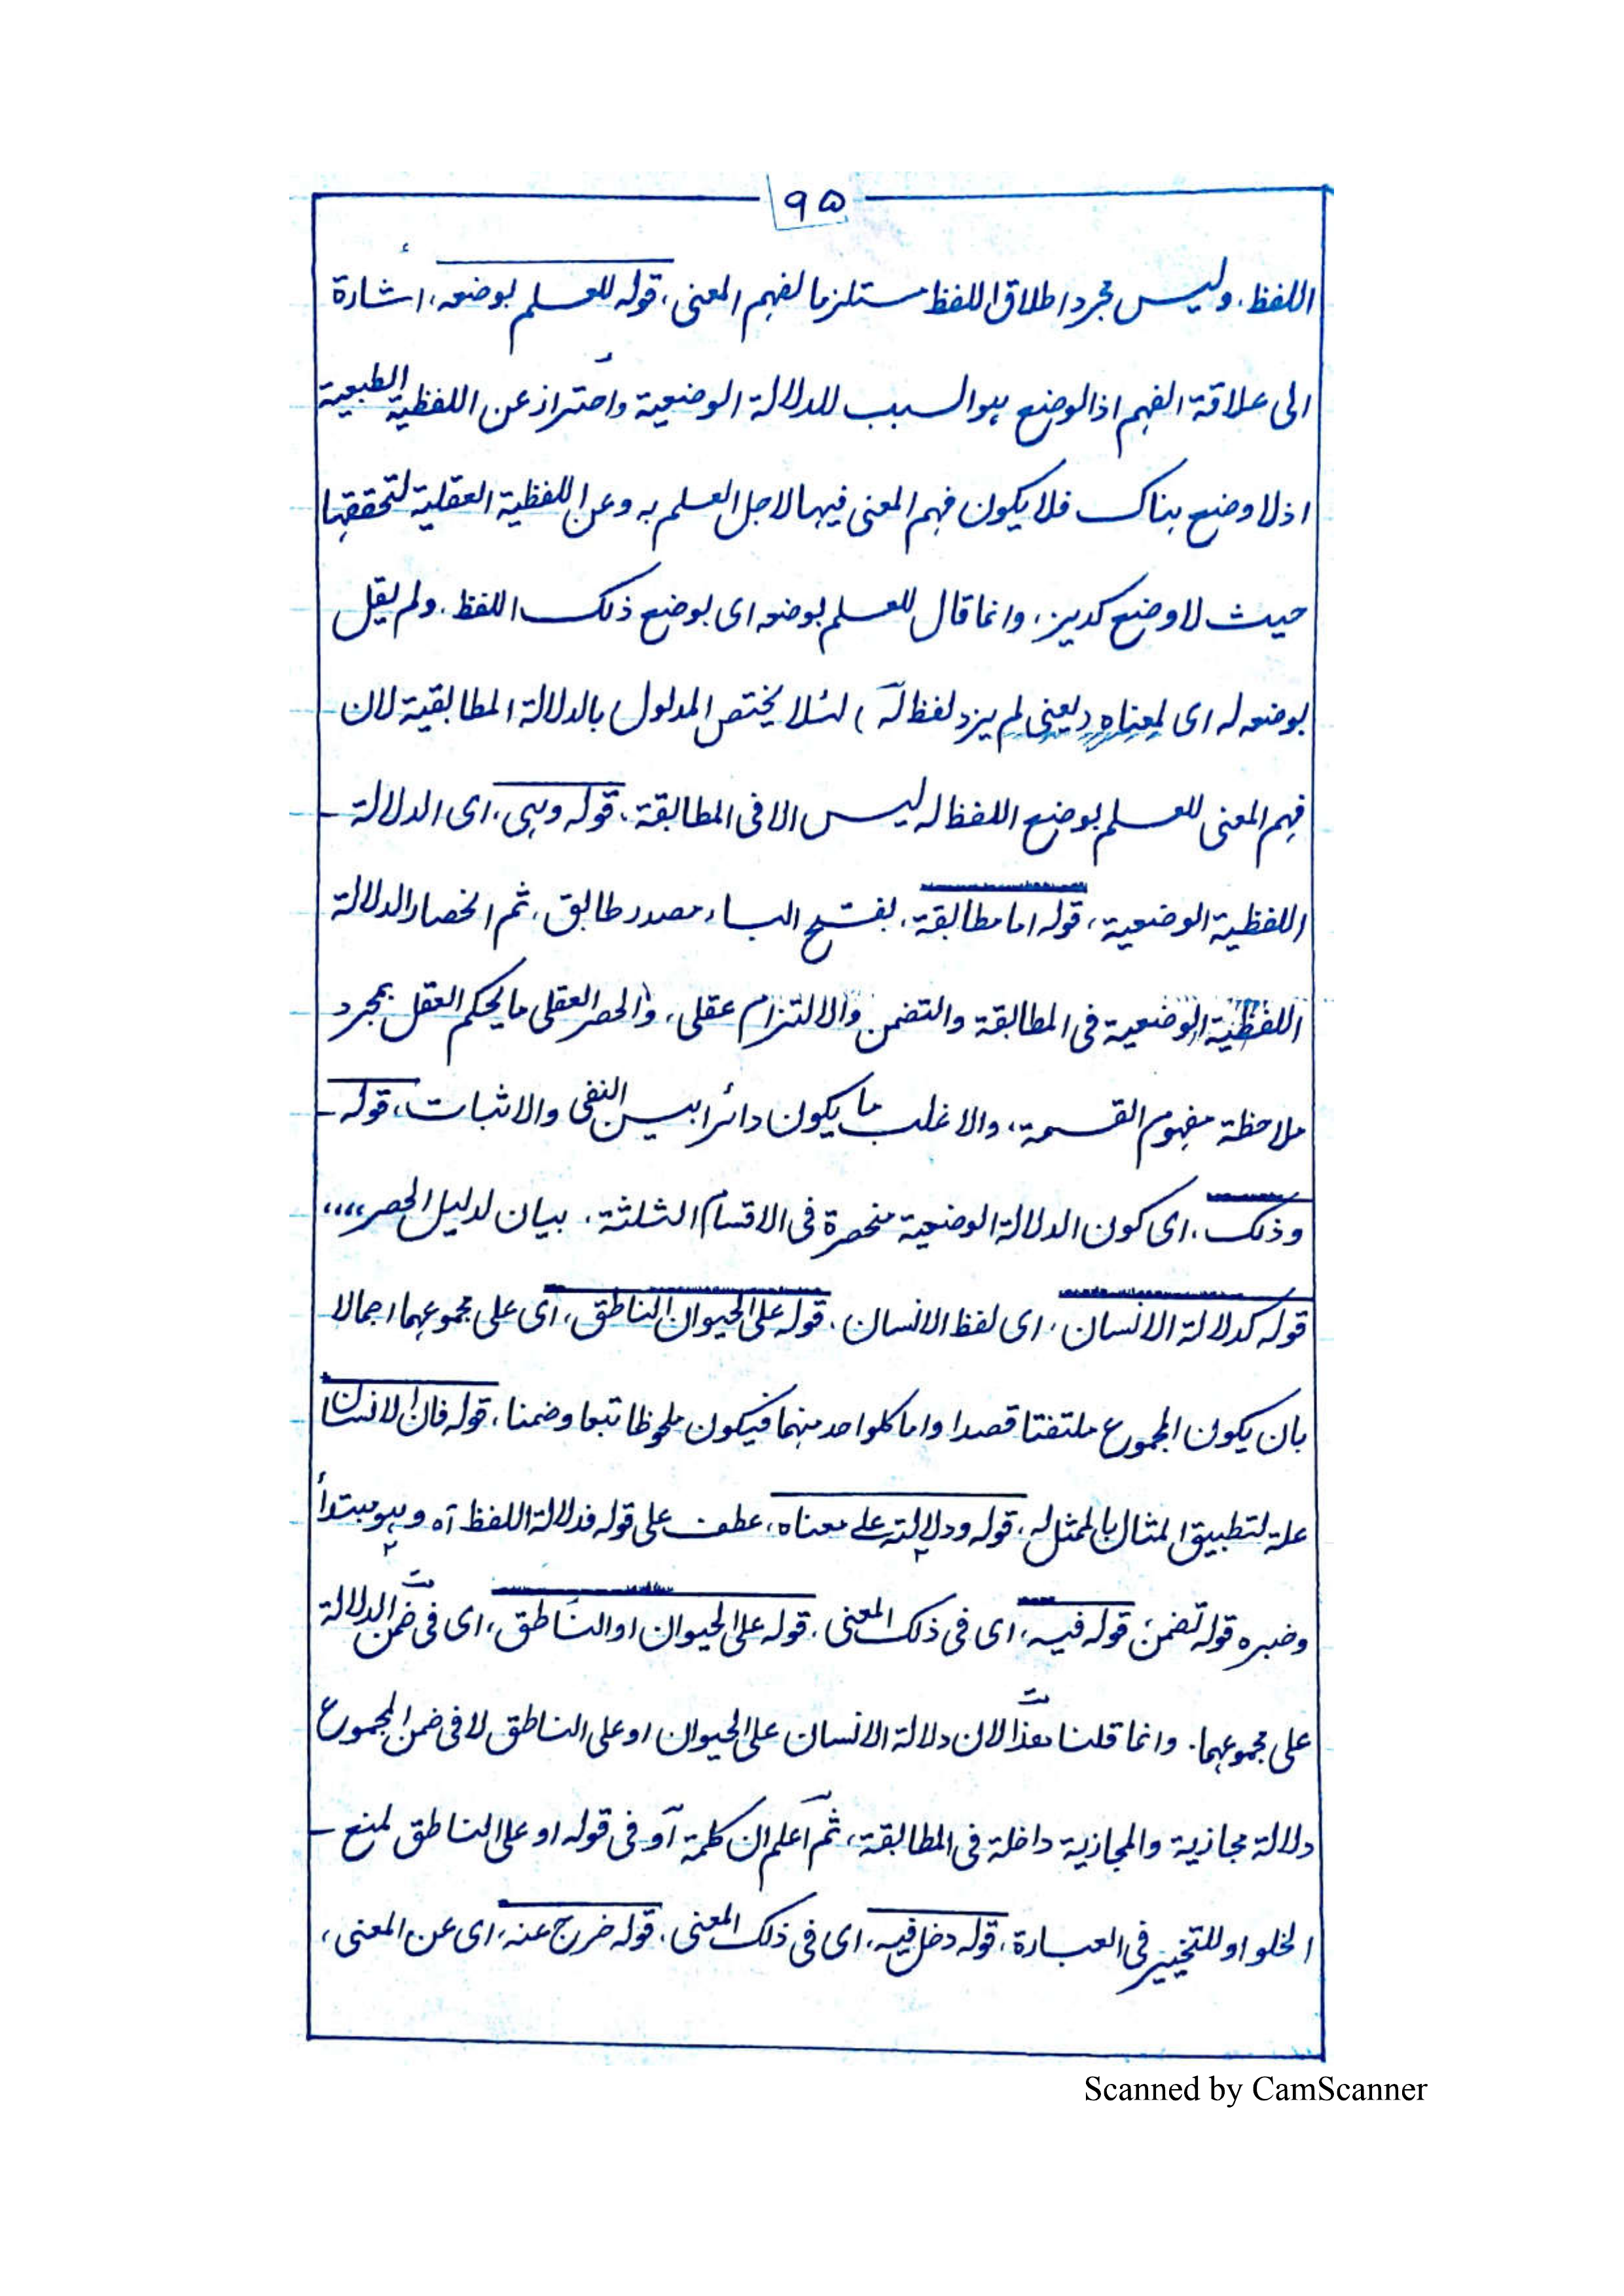 ۹۵
اللفظ. وليس مجرد اطلاق اللفظ مستلزما لفهم المعنى، قوله للعلم بوضعه، اشارة
الى علاقة الفهم اذ الوضع هو السبب للدلالة الوضعية واحتراز عن اللفظية الطبعية
اذ لا وضع هناك فلا يكون فهم المعنى فيها لاجل العلم به وعن اللفظية العقلية لتحققها
حيث لا وضع كديز، وانما قال للعلم بوضعه اى بوضع ذلك اللفظ. ولم يقل
بوضعه له اى لمعناه (يعنى لم يزد لفظ له) لئلا يختص المدلول بالدلالة المطابقية لان
فهم المعنى للعلم بوضع اللفظ له ليس الا فى المطابقة. قوله وهى، اى الدلالة
اللفظية الوضعية، قوله اما مطابقة، بفتح الباء مصدر طابق، ثم انحصار الدلالة
اللفظية الوضعية فى المطابقة والتضمن والالتزام عقلى، والحصر العقلى ما يحكم العقل بمجرد
ملاحظة مفهوم القسمة، والاغلب ما يكون دائرا بين النفى والاثبات، قوله
وذلك، اى كون الدلالة الوضعية منحصرة فى الاقسام الثلثة. بيان لدليل الحصر،،،،
قوله كدلالة الانسان، اى لفظ الانسان. قوله على الحيوان الناطق، اى على مجموعهما اجمالا
بان يكون المجموع ملتفتا قصدا واما كلواحد منهما فيكون ملحوظا تبعا وضمنا، قوله فان الانسان
علة لتطبيق المثال بالممثل له، قوله ودلالته على معناه، عطف على قوله فدلالة اللفظ آه وهو مبتدأ
وخبره قوله تضمن، قوله فيه، اى فى ذلك المعنى. قوله على الحيوان او الناطق، اى فى ضمن الدلالة
على مجموعهما. وانما قلنا هذا لان دلالة الانسان على الحيوان او على الناطق لا فى ضمن المجموع
دلالة مجازية والمجازية داخلة فى المطابقة، ثم اعلم ان كلمة او فى قوله او على الناطق لمنع
الخلو او للتخيير فى العبارة، قوله دخل فيه، اى فى ذلك المعنى. قوله خرج عنه، اى عن المعنى،
Scanned by CamScanner